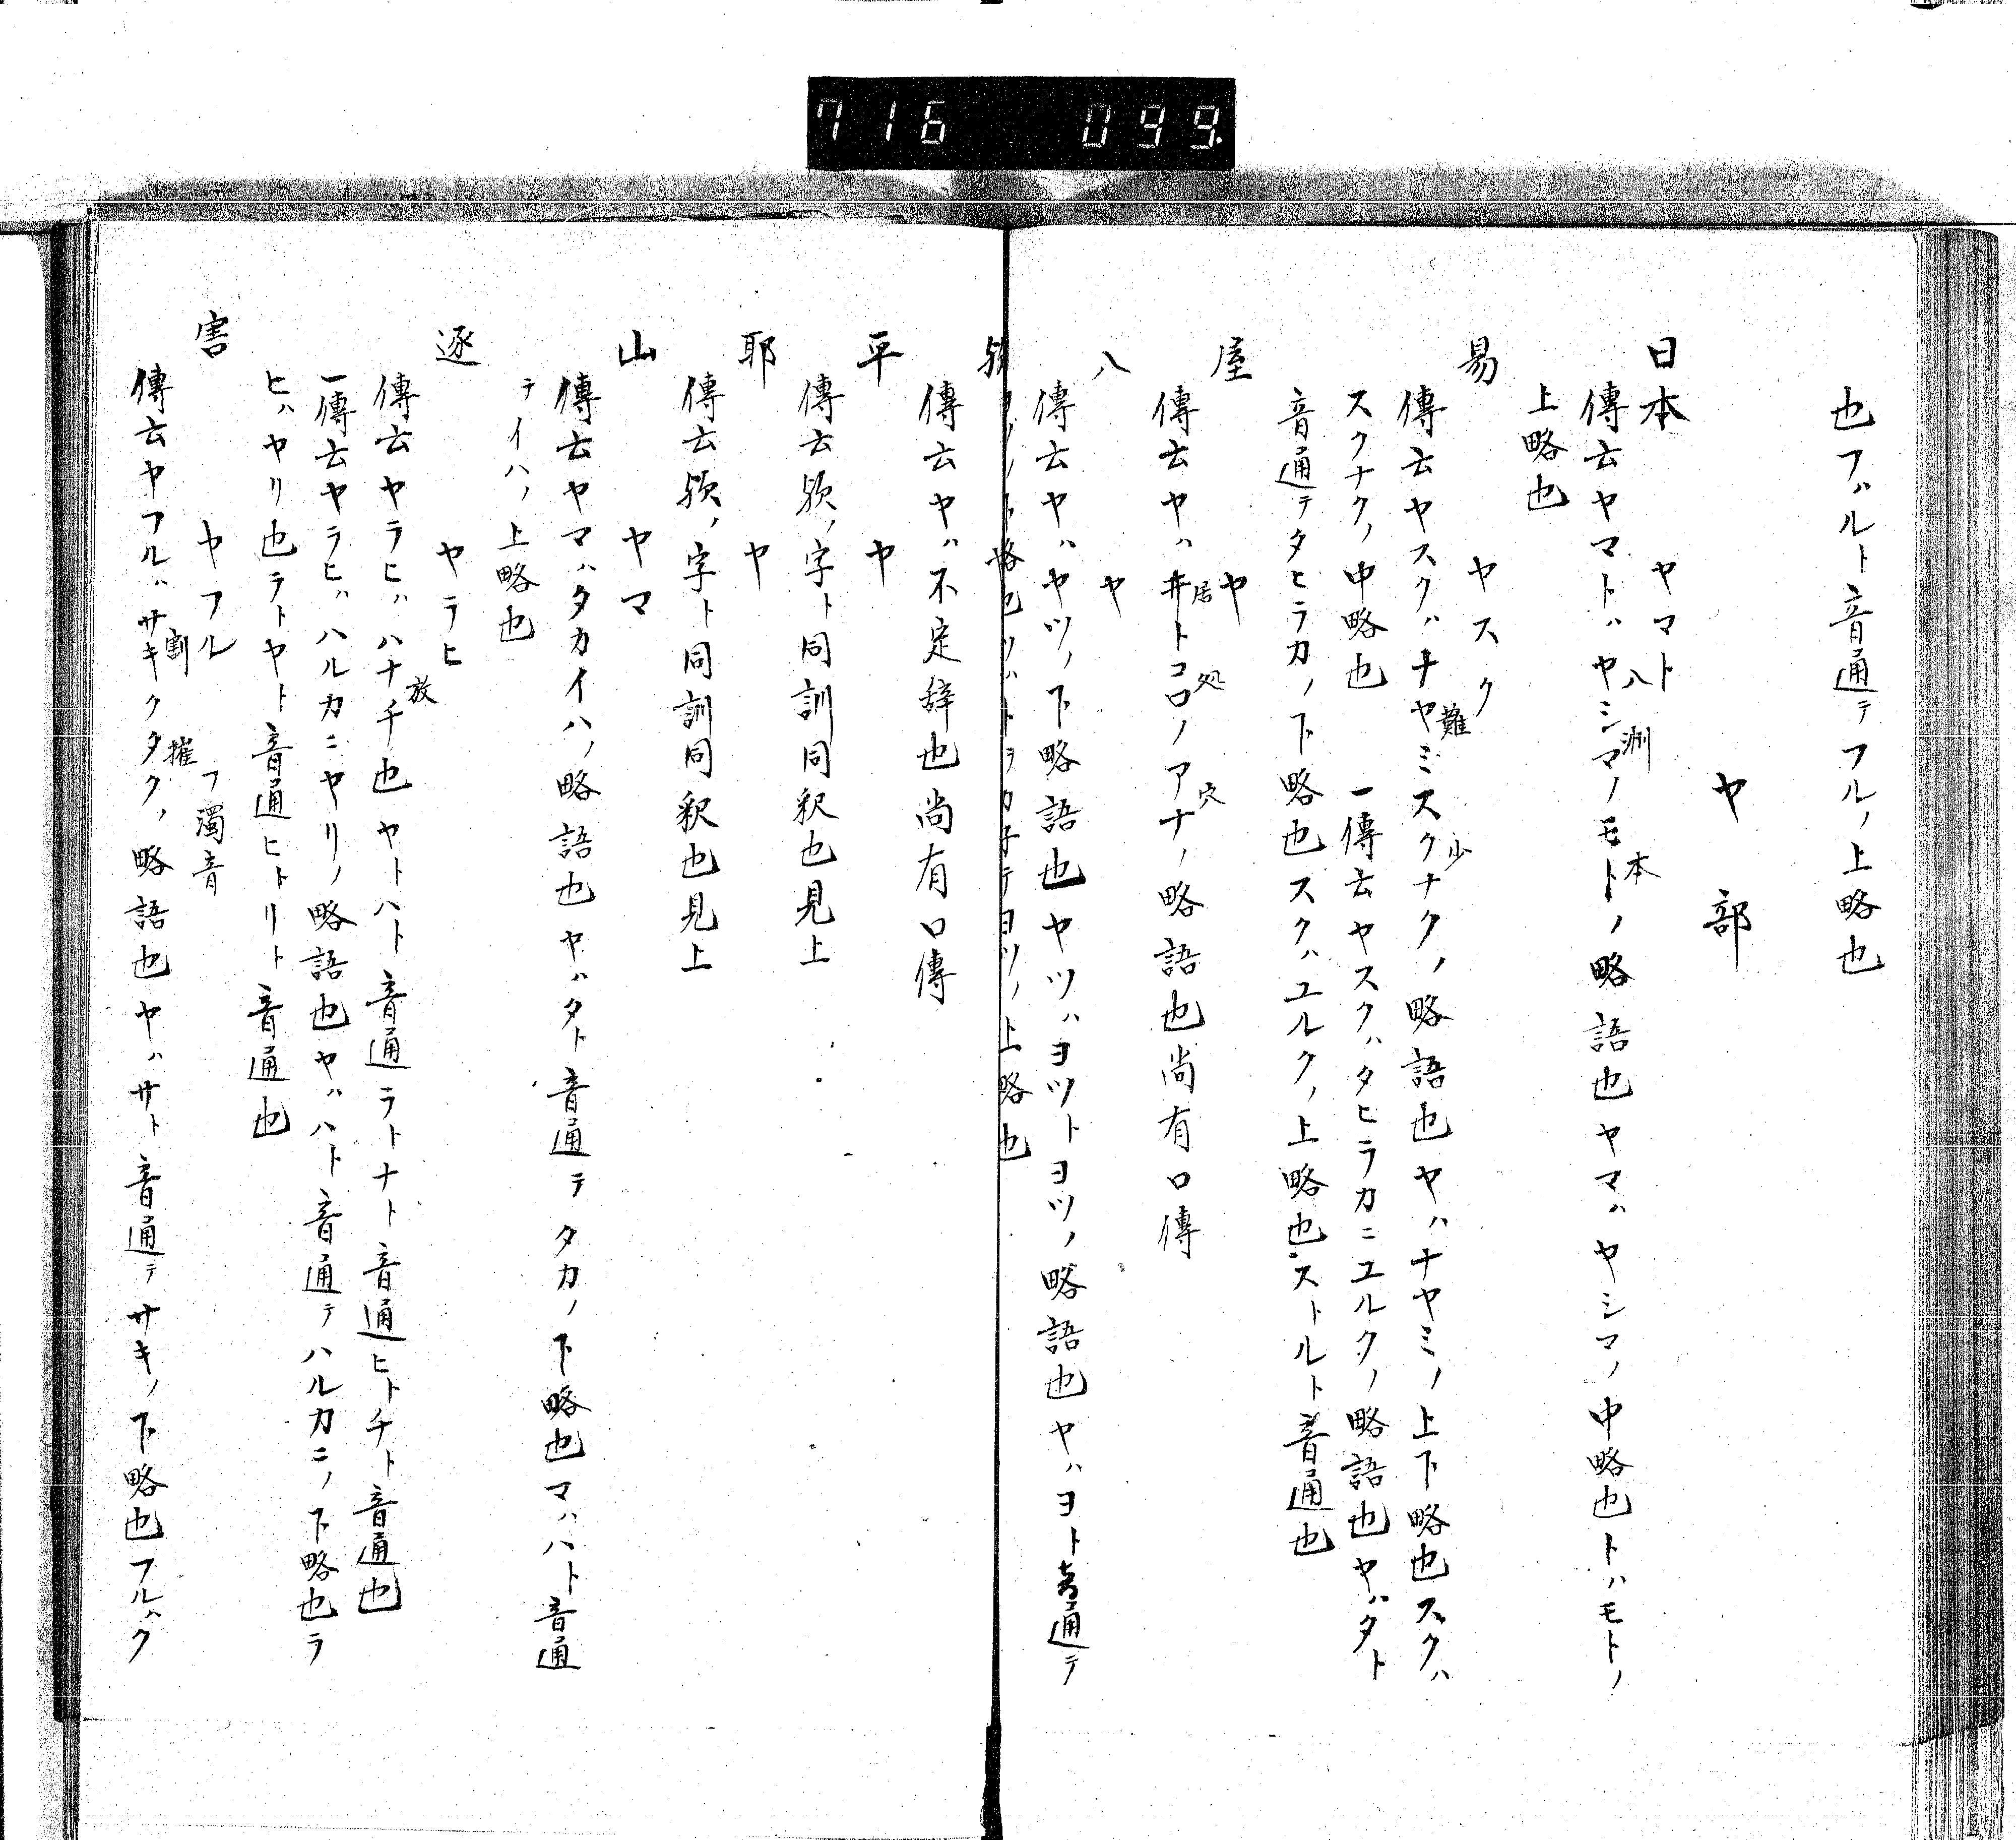 716 099.
也フハルト音通テフルノ上略也
ヤ部
日本 ヤマト
傳云ヤマトハヤシマノモトノ略語也ヤマハヤシマノ中略也トハモトノ
八 洲 本
上略也
易 ヤスク
傳云ヤスクハナヤミスクナクノ略語也ヤハナヤミノ上下略也スクハ
難 少
スクナクノ中略也 一傳云ヤスクハタヒラカニユルクノ略語也ヤハタト
音通テタヒラカノ下略也スクハユルクノ上略也ストルト音通也
屋 ヤ
傳云ヤハ井トコロノアナノ略語也尚有口傳
居 処 穴
八 ヤ
傳云ヤハヤツノ下略語也ヤツハヨツトヨツノ略語也ヤハヨト音通テ
上略也
傳云ヤハ不定辞也尚有口傳
乎 ヤ
傳云欤ノ字ト同訓同釈也見上
耶 ヤ
傳云欤ノ字ト同訓同釈也見上
山 ヤマ
傳云ヤマハタカイハノ略語也ヤハタト音通テタカノ下略也マハハト音通
テイハノ上略也
逐 ヤラヒ
傳云ヤラヒハハナチ也ヤトハト音通ラトナト音通ヒトチト音通也
放
一傳云ヤラヒハハルカニヤリノ略語也ヤハハト音通テハルカニノ下略也ラ
ヒハヤリ也ラトヤト音通ヒトリト音通也
害 ヤフル フ濁音
傳云ヤフルハサキクタクノ略語也ヤハサト音通テサキノ下略也フルハク
割 摧